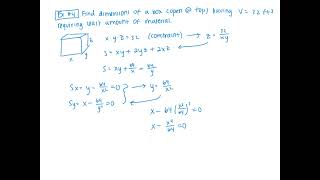 Ex #4 Find dimensions of a box (open @ top) having V = 32 ft3
requiring least amount of material.
x y z = 32 (constraint) → z = 32/xy
S = xy + 2yz + 2xz
x
y
z
S = xy + 64/x + 64/y
Sx = y - 64/x² = 0 → y = 64/x²
Sy = x - 64/y² = 0
x - 64(x²/64)² = 0
x - x⁴/64 = 0